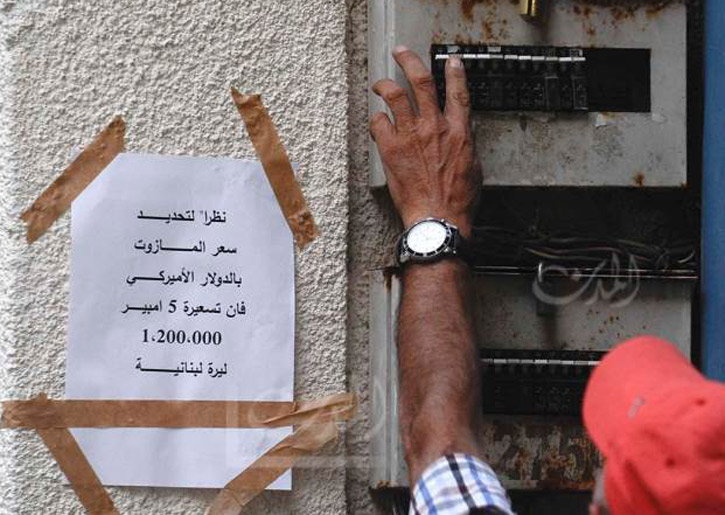 نظراً لتحديد
سعر المازوت
بالدولار الأميركي
فان تسعيرة 5 امبير
1،200،000
ليرة لبنانية
المدن